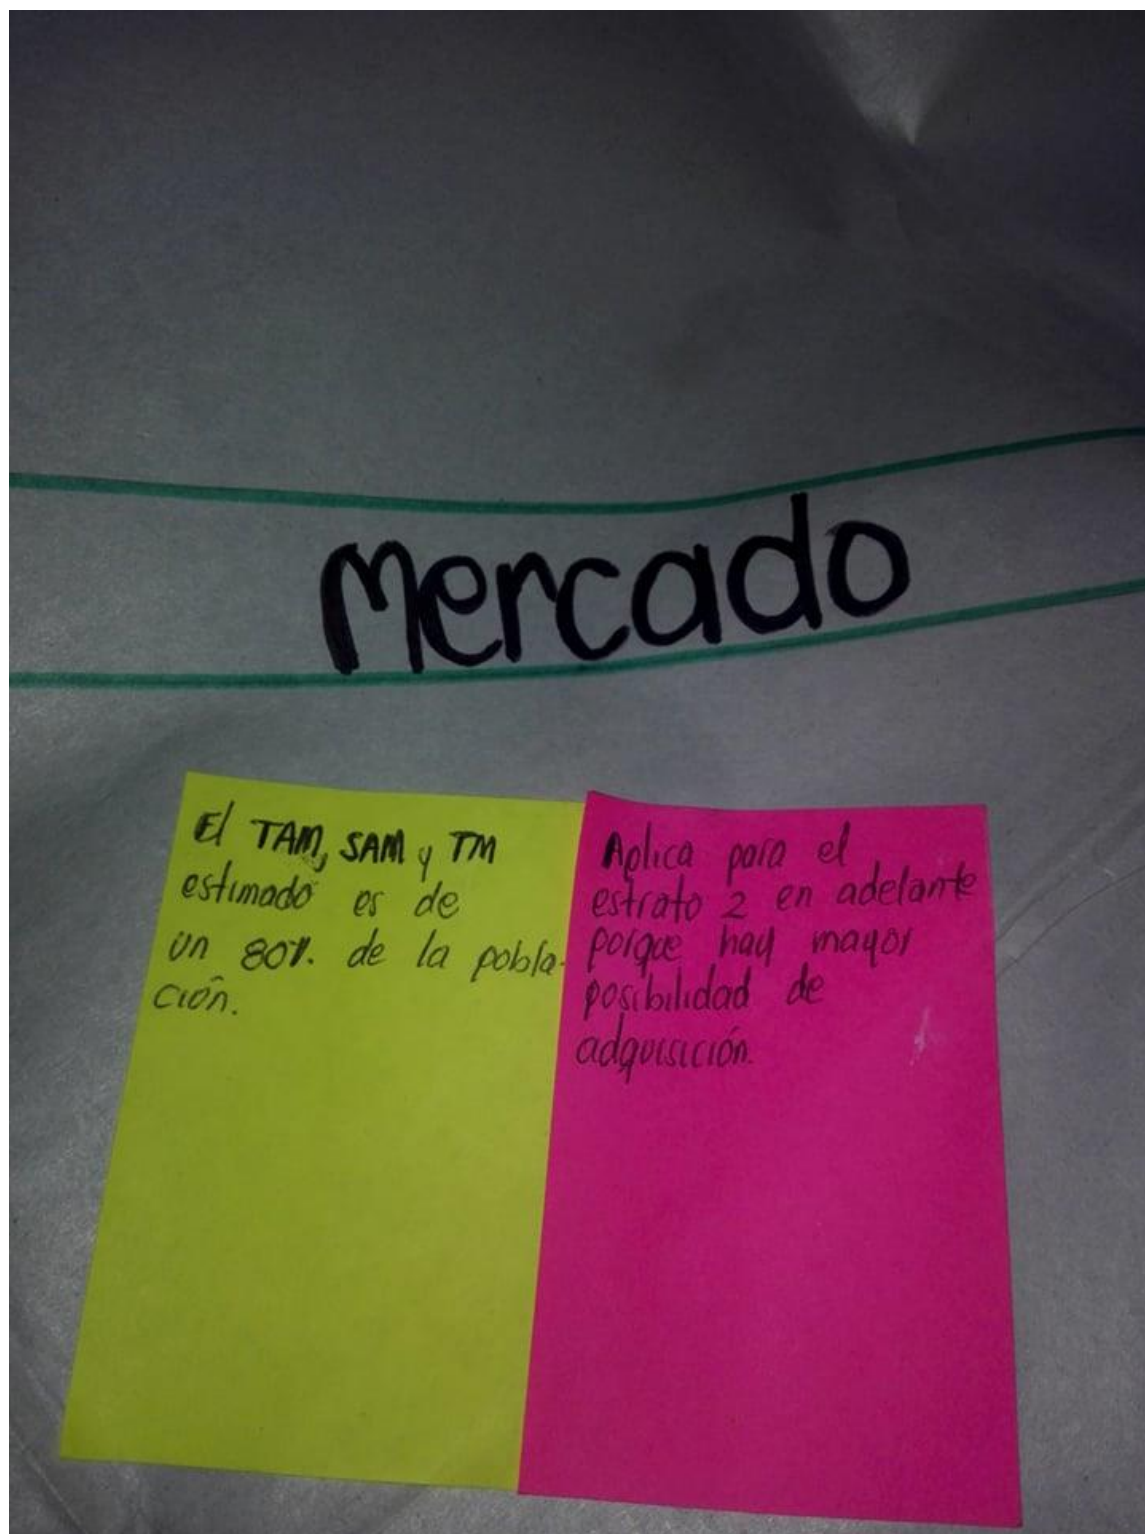 Mercado
El TAM, SAM y TM
estimado es de
un 80%. de la pobla-
ción.
Aplica para el
estrato 2 en adelante
porque hay mayor
posibilidad de
adquisición.